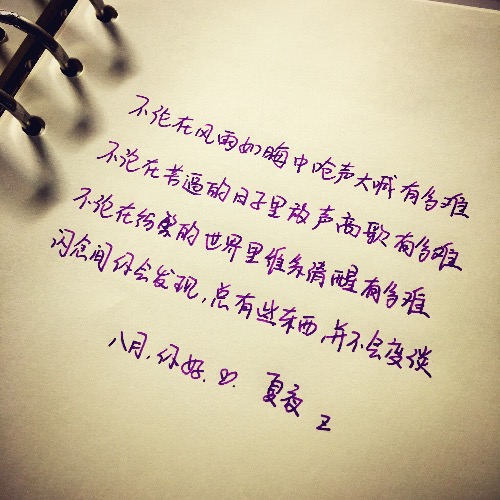 不论在风雨如晦中呛声大喊有多难
不论在苦逼的日子里放声高歌有多难
不论在纷繁的世界里维系清醒有多难
闪念间你会发现,总有些东西,并不会变谈
八月,你好.♡. 夏夜 Z